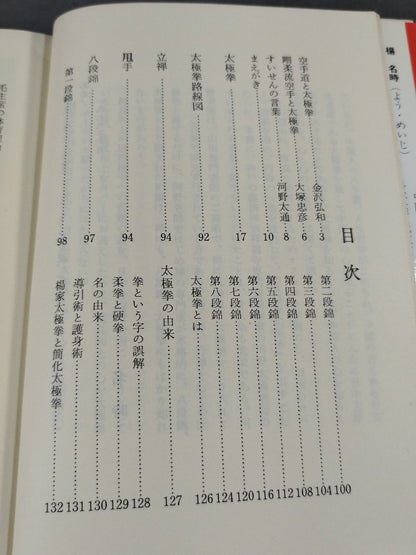 楊 名時(よう・めいじ)
目次
空手道と太極拳……金沢弘和…3
剛柔流空手と太極拳……大塚忠彦…6
すいせんの言葉……河野太通…8
まえがき……10
太極拳……17
太極拳路線図……92
立禅……94
甩手……94
八段錦……97
第一段錦……98
第二段錦……100
第三段錦……104
第四段錦……108
第五段錦……112
第六段錦……116
第七段錦……120
第八段錦……124
太極拳とは……126
太極拳の由来……127
拳という字の誤解……128
柔拳と硬拳……129
名の由来……130
導引術と護身術……131
楊家太極拳と簡化太極拳……132